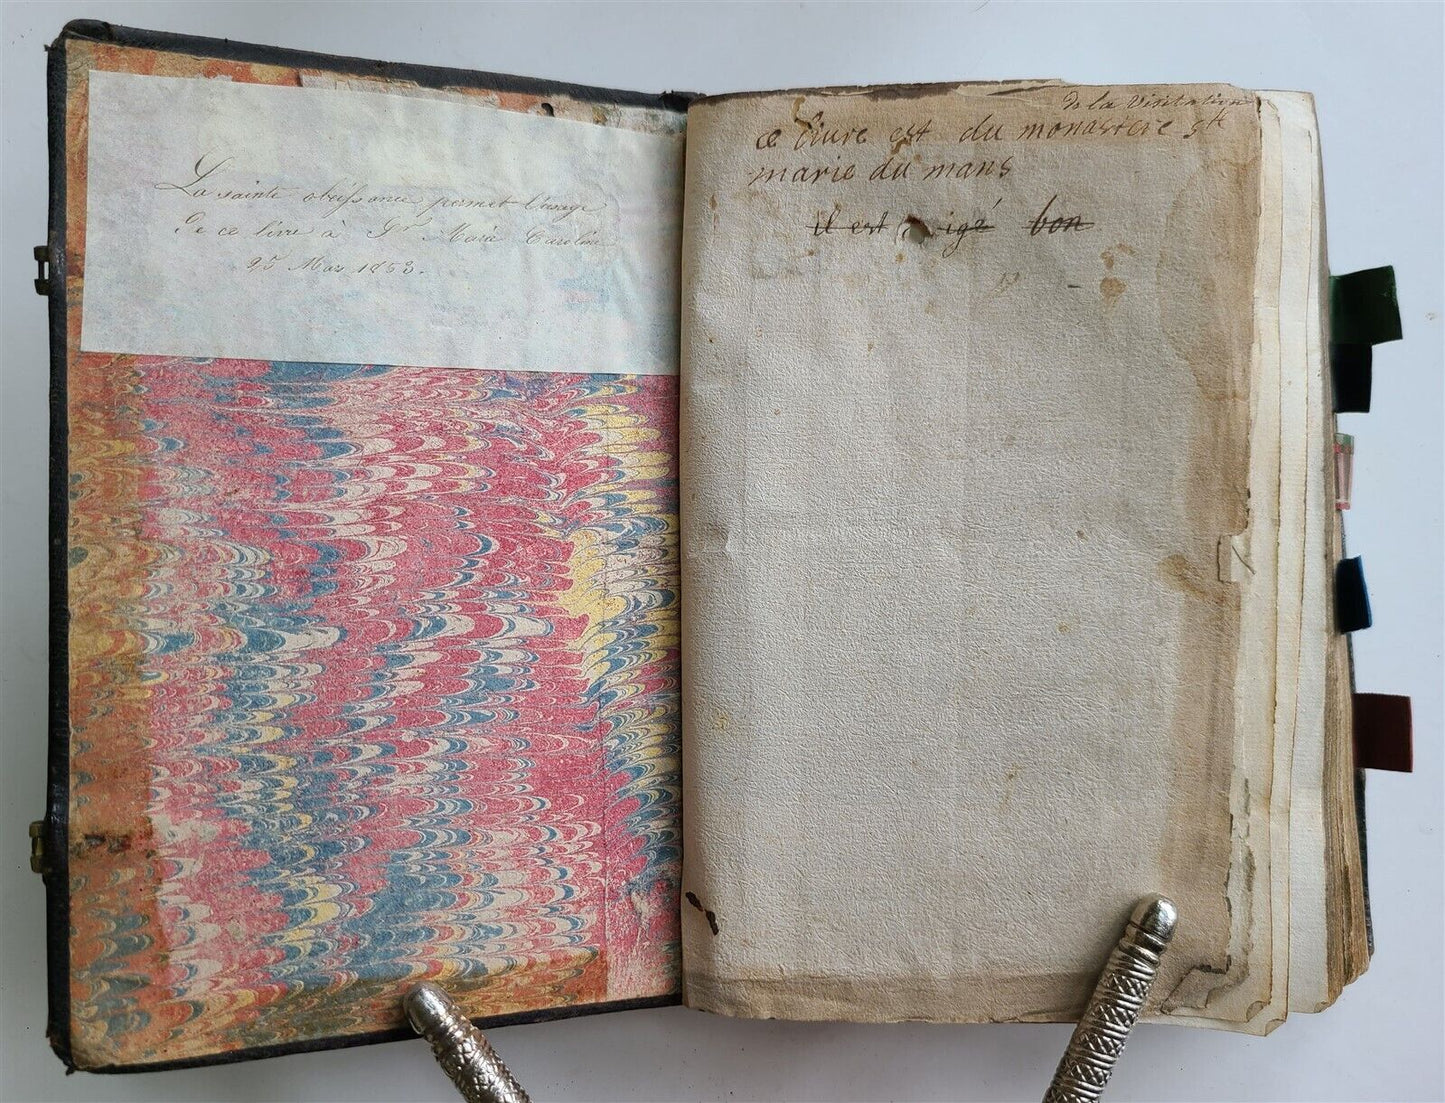 La sainte obéissance permet l'usage
De ce livre à Sr Maria Caroline
25 Mars 1853.
de la visitation
ce livre est du monastere ste
marie du mans
il est bon